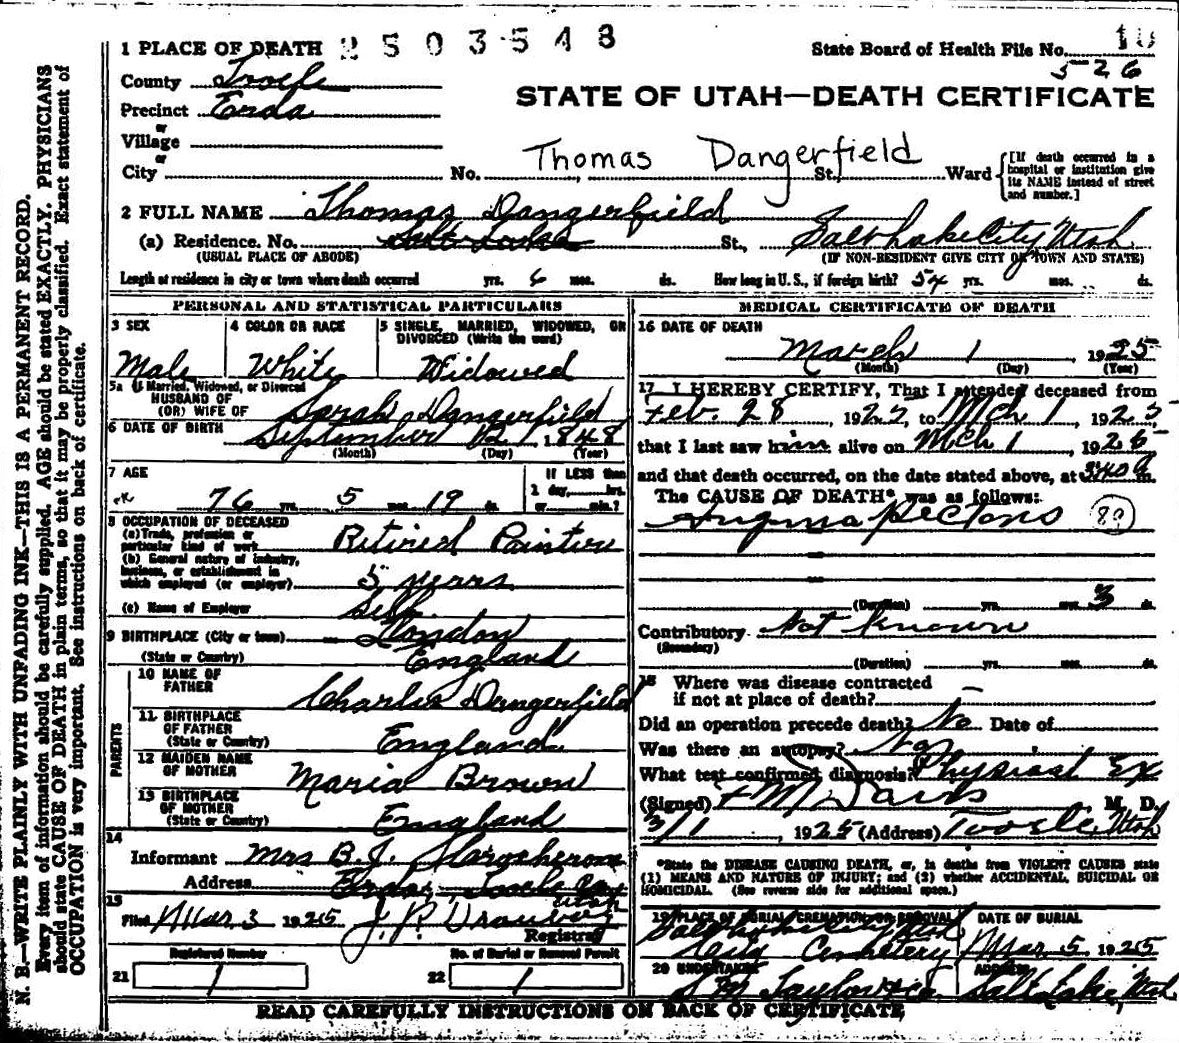 N. B.—WRITE PLAINLY WITH UNFADING INK—THIS IS A PERMANENT RECORD.
Every item of information should be carefully supplied. AGE should be stated EXACTLY. PHYSICIANS
should state CAUSE OF DEATH in plain terms, so that it may be properly classified. Exact statement of
OCCUPATION is very important. See instructions on back of certificate.
1 PLACE OF DEATH 2503548
State Board of Health File No. 10
526
County Tooele
Precinct Erda
STATE OF UTAH—DEATH CERTIFICATE
or
Village
or
City No. Thomas Dangerfield St., Ward
[If death occurred in a hospital or institution give its NAME instead of street and number.]
2 FULL NAME Thomas Dangerfield
(a) Residence. No. Salt Lake St., Salt Lake City Utah
(USUAL PLACE OF ABODE) (IF NON-RESIDENT GIVE CITY OR TOWN AND STATE)
Length of residence in city or town where death occurred yrs. 6 mos. ds. How long in U. S., if foreign birth? 54 yrs. mos. ds.
PERSONAL AND STATISTICAL PARTICULARS
3 SEX
Male
4 COLOR OR RACE
White
5 SINGLE, MARRIED, WIDOWED, OR
DIVORCED (Write the word)
Widowed
5a If Married, Widowed, or Divorced
HUSBAND OF
(OR) WIFE OF Sarah Dangerfield
6 DATE OF BIRTH September 12 1848
(Month) (Day) (Year)
7 AGE
76 yrs. 5 mos. 19 ds.
If LESS than
1 day, hrs.
or min.?
8 OCCUPATION OF DECEASED
(a) Trade, profession or
particular kind of work Retired Painter
(b) General nature of industry,
business, or establishment in
which employed (or employer) 5 years
(c) Name of Employer Self
9 BIRTHPLACE (City or town) London
(State or Country) England
PARENTS
10 NAME OF
FATHER Charles Dangerfield
11 BIRTHPLACE
OF FATHER
(State or Country) England
12 MAIDEN NAME
OF MOTHER Maria Brown
13 BIRTHPLACE
OF MOTHER
(State or Country) England
14
Informant Mrs B. J.
Address Erda, Tooele Co
Utah
15
Filed Mar. 3 1925 J. P.
Registrar
Registered Number
21 1
No. of Burial or Removal Permit
22 1
MEDICAL CERTIFICATE OF DEATH
16 DATE OF DEATH
March 1, 1925
(Month) (Day) (Year)
17 I HEREBY CERTIFY, That I attended deceased from
Feb. 28, 1925, to Mch 1, 1925
that I last saw him alive on Mch 1 1925
and that death occurred, on the date stated above, at m.
The CAUSE OF DEATH* was as follows:
Angina Pectoris
(Duration) yrs. mos. 3 ds.
Contributory Not Known
(Secondary)
(Duration) yrs. mos. ds.
18 Where was disease contracted
if not at place of death?
Did an operation precede death? No Date of
Was there an autopsy? No
What test confirmed diagnosis? Physical Ex
(Signed) M Davis M. D.
3/1, 1925 (Address) Tooele, Utah
*State the DISEASE CAUSING DEATH, or, in deaths from VIOLENT CAUSES state
(1) MEANS AND NATURE OF INJURY; and (2) whether ACCIDENTAL, SUICIDAL OR
HOMICIDAL. (See reverse side for additional space.)
19 PLACE OF BURIAL, CREMATION OR REMOVAL
Salt Lake City Utah
City Cemetery
DATE OF BURIAL
Mar. 5 1925
20 UNDERTAKER
S M Taylor & Co.
ADDRESS
Salt Lake, Utah
READ CAREFULLY INSTRUCTIONS ON BACK OF CERTIFICATE